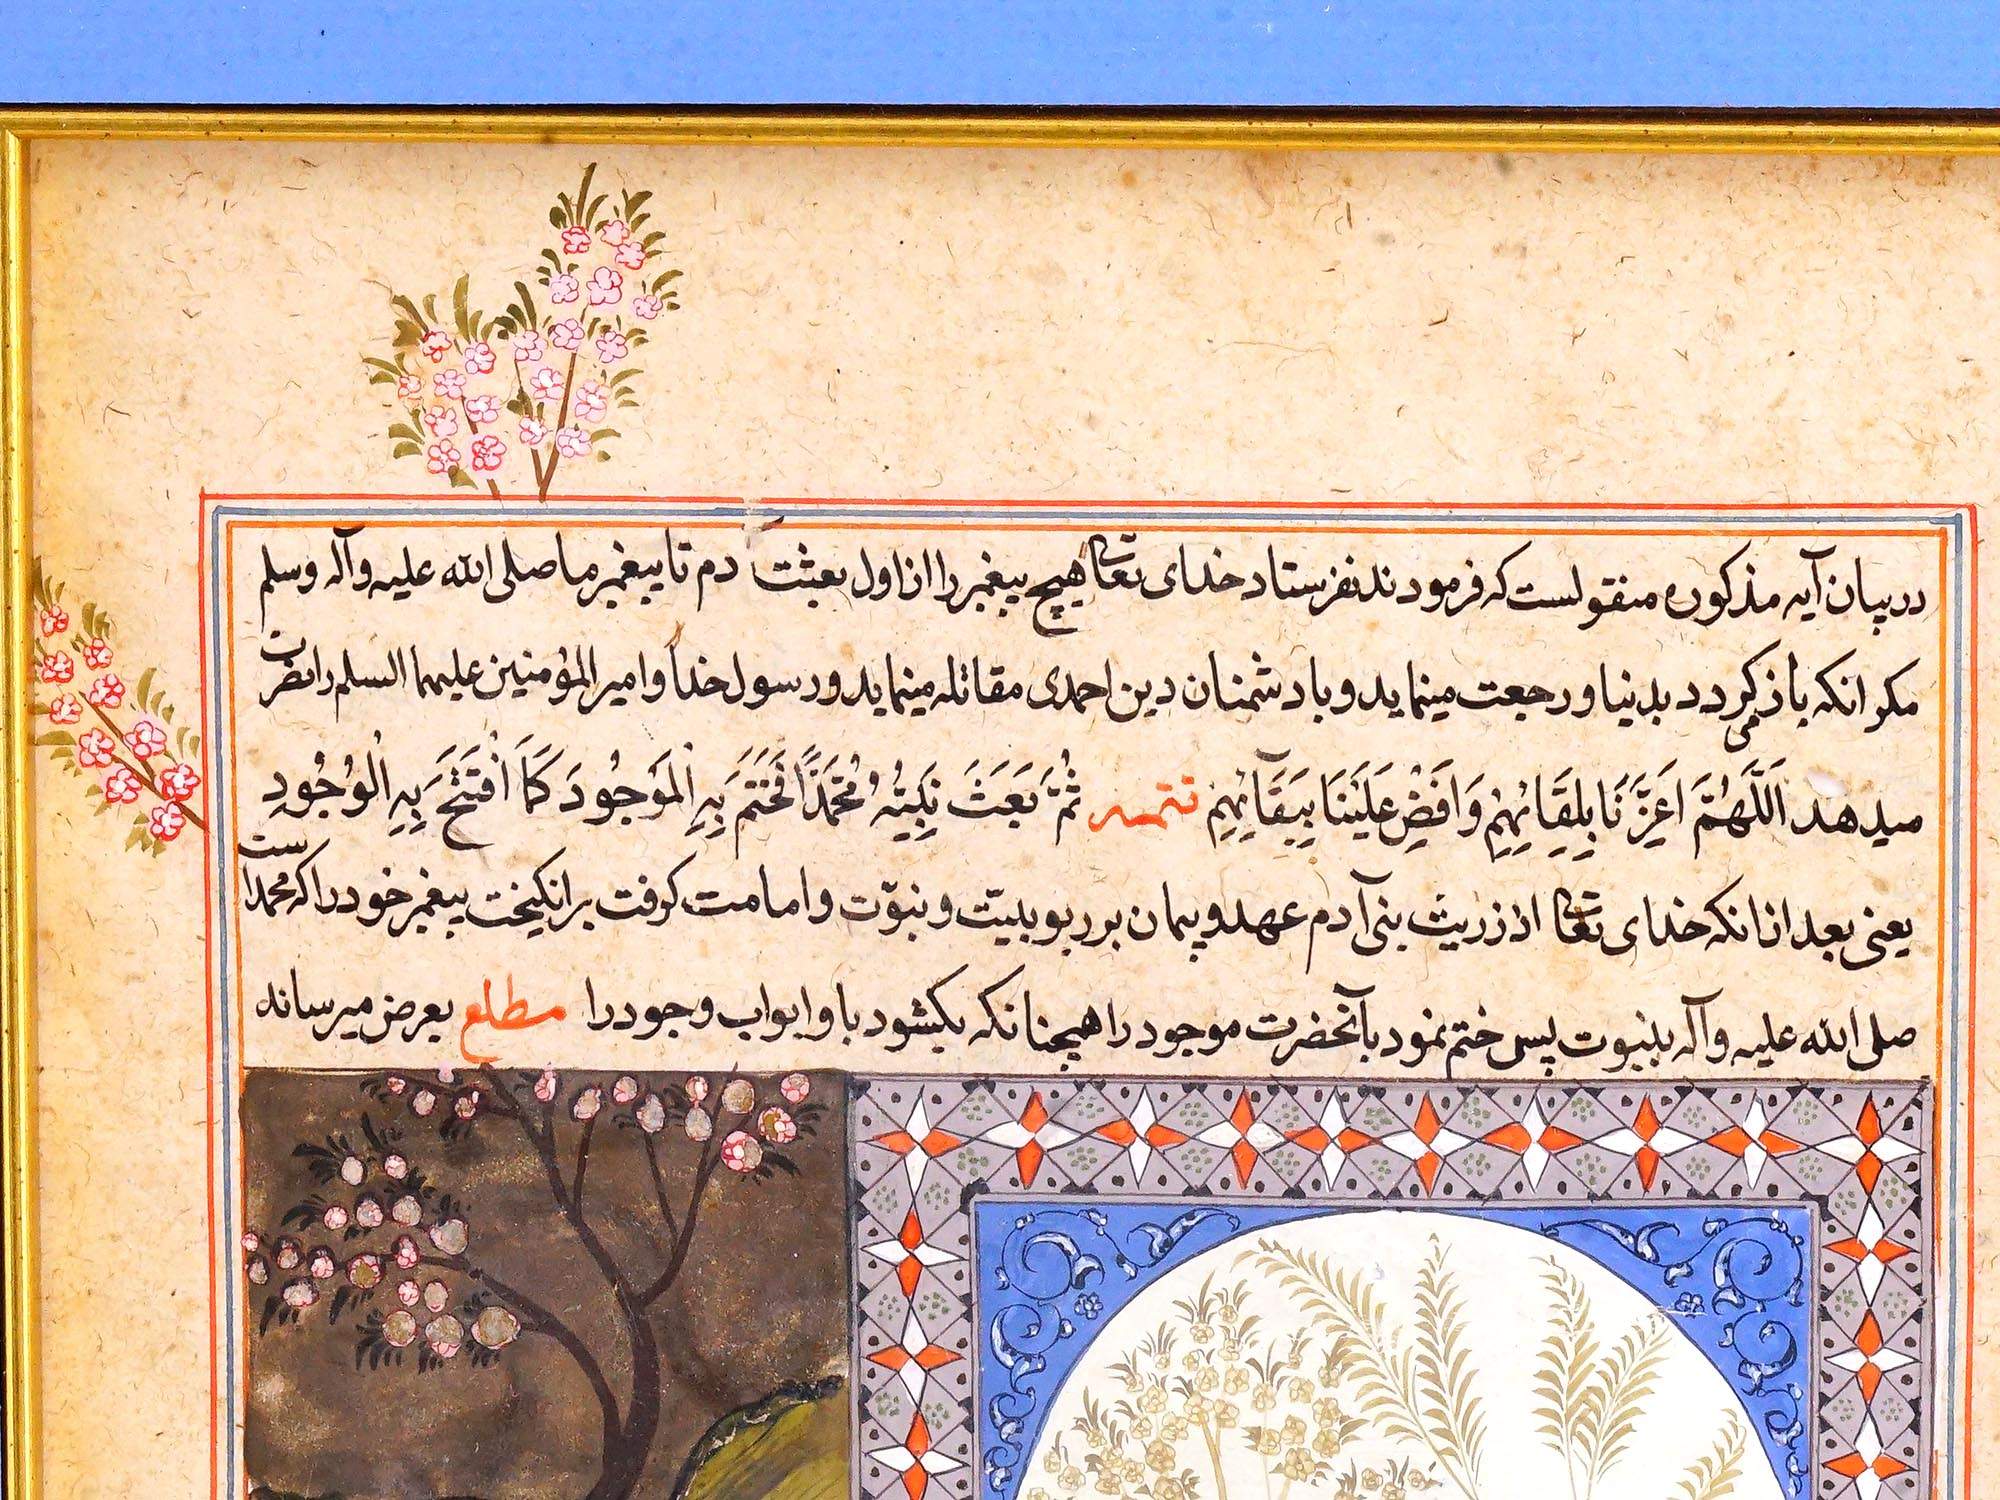 در بیان آیه مذکوره منقولست که فرمودند نفرستاد خدای تعالی هیچ پیغمبر را از اول بعثت آدم تا پیغمبر ما صلی الله علیه وآله وسلم
مکر انکه باز می کردد بدنیا و رجعت مینماید و با دشمنان دین احمدی مقاتله مینماید و رسول خدا و امیر المؤمنین علیهما السلم را نصرت
میدهد اَللَّهُمَّ اَعِزَّنَا بِلِقَائِهِمْ وَاَفِضْ عَلَیْنَا بِبَقَآئِهِمْ تتمه ثُمَّ بَعَثَ نَبِیَّهُ مُحَمَّدًا فَخَتَمَ بِهِ الْمَوْجُودَ کَمَا افْتَتَحَ بِهِ الْوُجُودِ
یعنی بعد از انکه خدای تعالی از ذریت بنی آدم عهد و پیمان بر ربوبیت و نبوّت و امامت کرفت برانکیخت پیغمبر خود را که محمد است
صلی الله علیه وآله بنبوت پس ختم نمود بآنحضرت موجود را همچنانکه بکشود باو ابواب وجود را مطلع بعرض میرساند